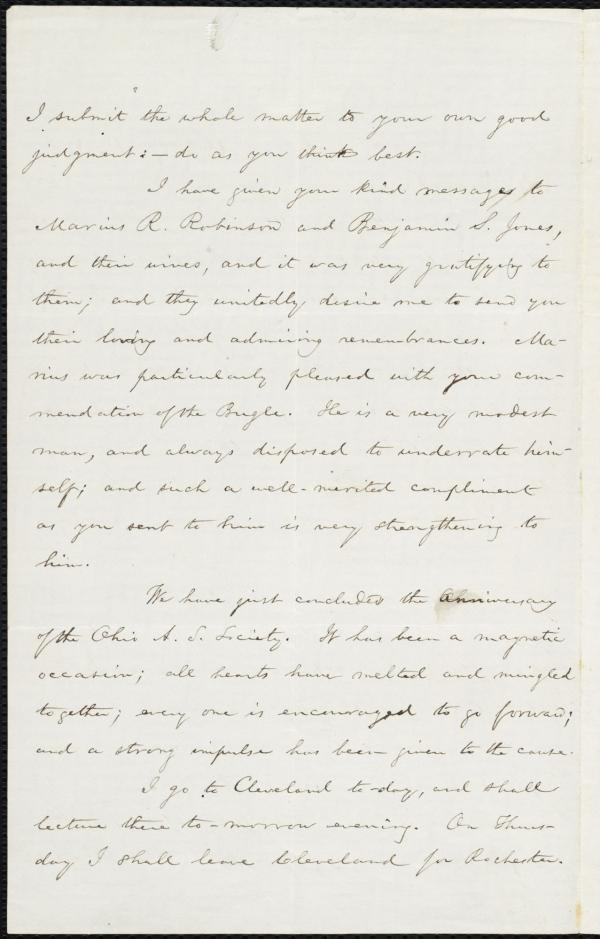 I submit the whole matter to your own good
judgment: — do as you think best.
I have given your kind messages to
Marius R. Robinson and Benjamin S. Jones,
and their wives, and it was very gratifying to
them; and they unitedly desire me to send you
their loving and admiring remembrances. Ma-
rius was particularly pleased with your com-
mendation of the Bugle. He is a very modest
man, and always disposed to underrate him-
self; and such a well-merited compliment
as you sent to him is very strengthening to
him.
We have just concluded the Anniversary
of the Ohio A. S. Society. It has been a magnetic
occasion; all hearts have melted and mingled
together; every one is encouraged to go forward;
and a strong impulse has been given to the cause.
I go to Cleveland to-day, and shall
lecture there to-morrow evening. On Thurs-
day I shall leave Cleveland for Rochester.